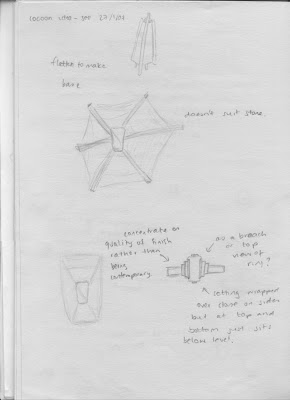 cocoon
flatten to make
base
doesn't suit stone.
concentrate on
quality of finish
rather than
being
contemporary.
as a broach
or top
view of
ring?
setting wrapped
over stone on sides
but at top and
bottom just sits
below level.